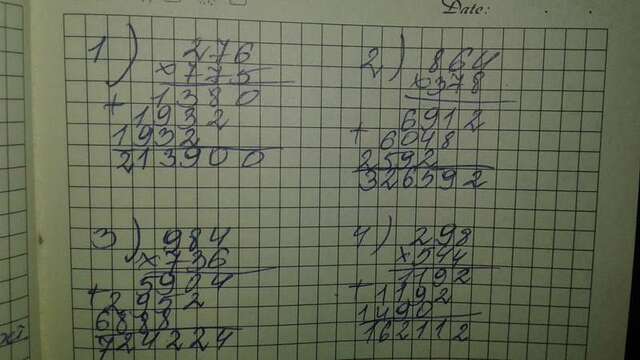 Date:
1) 276
× 775
+ 1380
1932
1932
213900
2) 864
× 378
6912
+ 6048
2592
326592
3) 984
× 736
+ 5904
2952
6888
724224
4) 298
× 544
+ 1192
1192
1490
162112